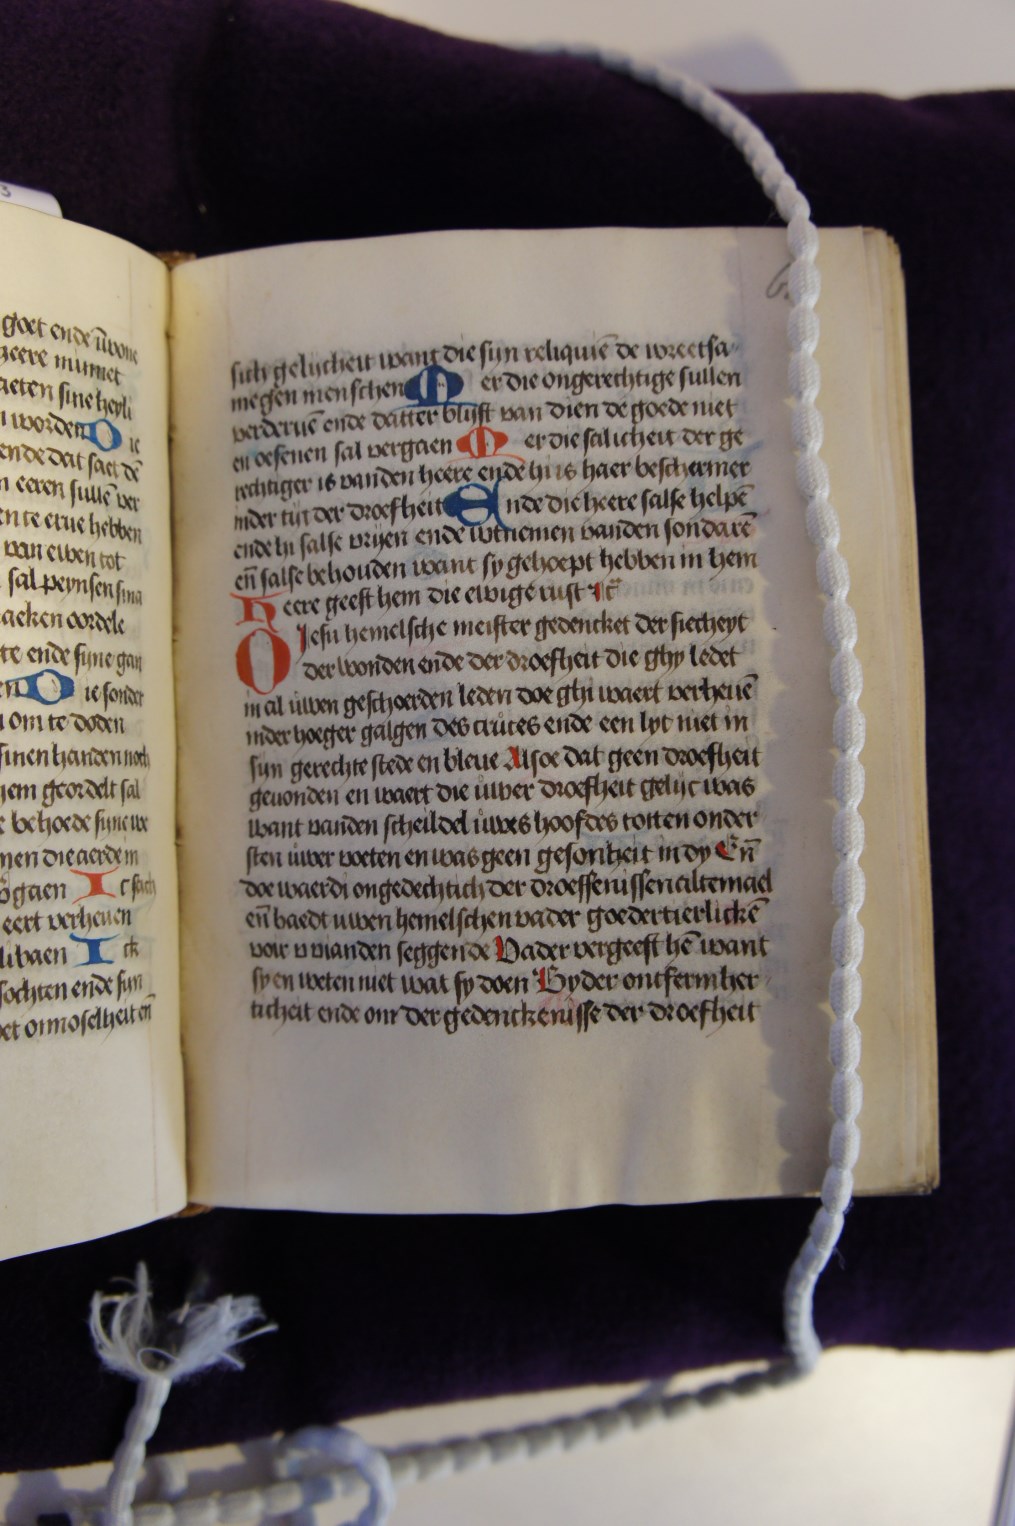 3
goet ende
heere
sine heyli
worden O ie
ende dat saet dē
eeren sullē ver
en te erue hebben
van ewen tot
sal peynsen sina
oordele
te ende syne gan
O ie sonder
om te doden
sinen handen noch
hem geordelt sal
behoede syne we
men die aerde in
gaen I c sach
eert verheuen
libaen I ck
sochten ende syn
et onnoselheit eñ
sijn gelijcheit want die syn reliquiē de wreetsa-
megen menschen M er die ongerechtige sullen
verderuē ende datter blijft van dien de goede niet
en oefenen sal vergaen M er die salicheit der ge
rechtiger is vanden heere ende hi is haer beschermer
inder tijt der droefheit E nde die heere salse helpē
ende hi salse vrijen ende wtnemen vanden sondarē
eñ salse behouden want sy gehoept hebben in hem
H eere geest hem die ewige rust
O Jesu hemelsche meister gedencket der siecheyt
der wonden ende der droefheit die ghy ledet
in al uwen geschoerden leden doe ghi waert verheuē
inder hoeger galgen des cruces ende een lyt niet in
syn gerechte stede en bleue Alsoe dat geen droefheit
geuonden en waert die uwer droefheit gelijc was
want vanden scheildel uwes hoofdes totten onder
sten uwer voeten en was geen gesontheit in dy Eñ
doe waerdi ongedechtich der droeffenissen altemael
eñ baedt uwen hemelschen vader goedertierlickē
voir u vianden seggende Vader vergeeft hē want
sy en weten niet wat sy doen By der ontfermher-
ticheit ende om der gedenckenisse der droefheit